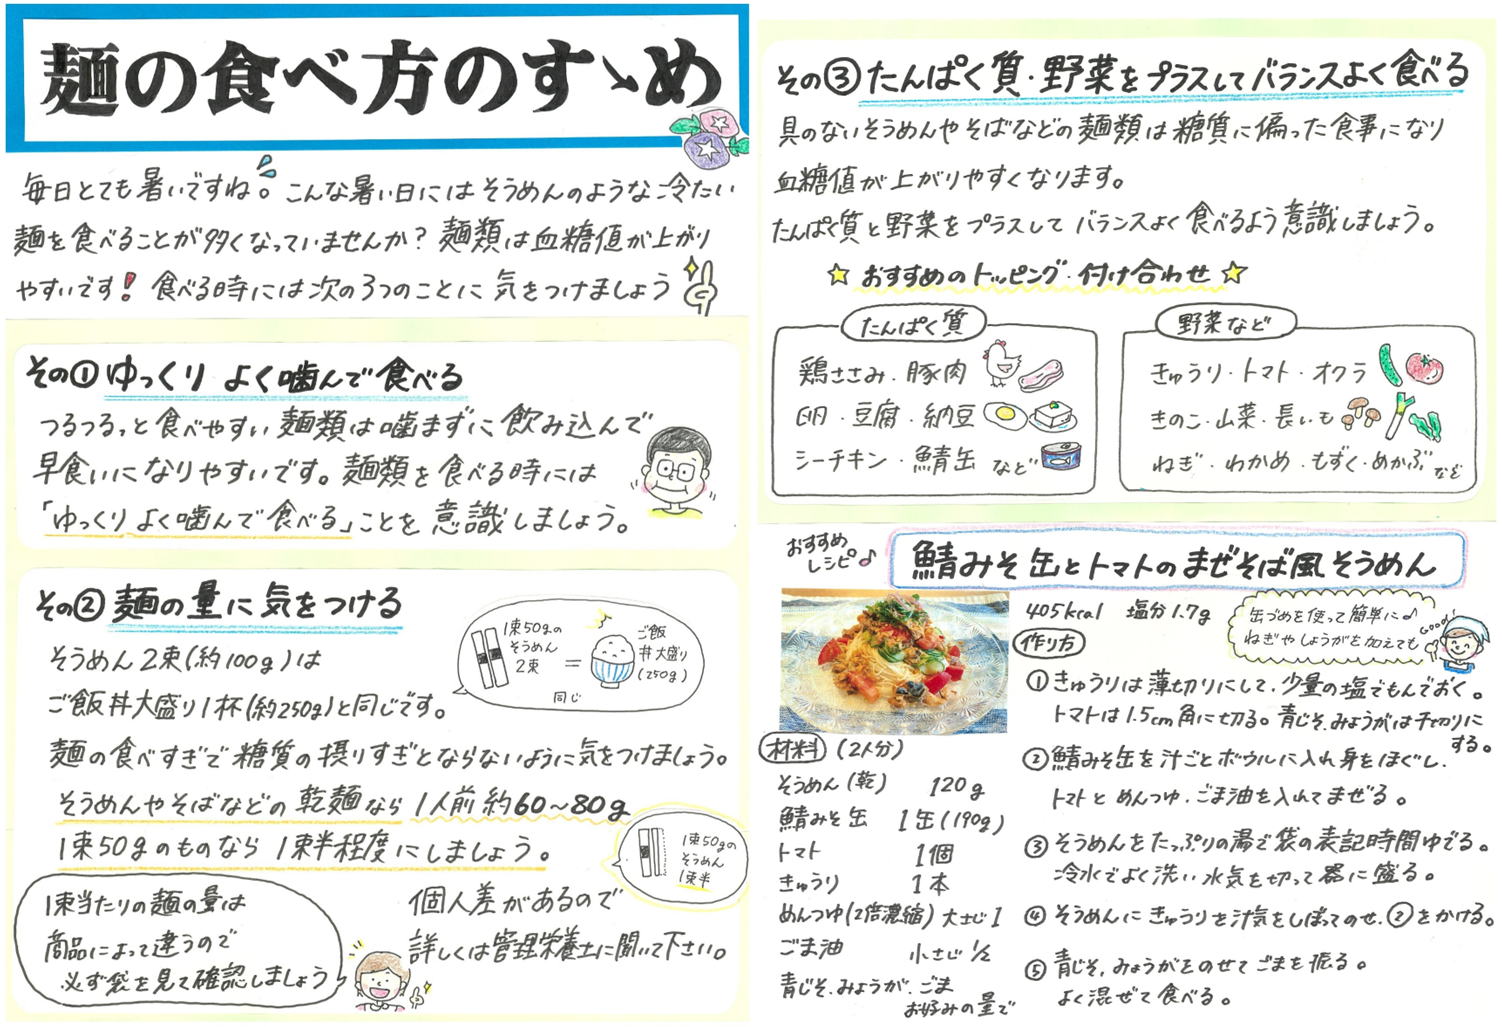 麺の食べ方のすゝめ
毎日とても暑いですね。こんな暑い日にはそうめんのような冷たい
麺を食べることが多くなっていませんか？麺類は血糖値が上がり
やすいです！食べる時には次の3つのことに気をつけましょう
その① ゆっくり よく噛んで食べる
つるつるっと食べやすい麺類は噛まずに飲み込んで
早食いになりやすいです。麺類を食べる時には
「ゆっくりよく噛んで食べる」ことを意識しましょう。
その② 麺の量に気をつける
そうめん2束(約100g)は
ご飯丼大盛り1杯(約250g)と同じです。
1束50gの
そうめん
2束
=
同じ
ご飯
丼大盛り
(250g)
麺の食べすぎで糖質の摂りすぎとならないように気をつけましょう。
そうめんやそばなどの乾麺なら 1人前約60〜80g
1束50gのものなら 1束半程度にしましょう。
1束50gの
そうめん
1束半
1束当たりの麺の量は
商品によって違うので
必ず袋を見て確認しましょう
個人差があるので
詳しくは管理栄養士に聞いて下さい。
その③ たんぱく質・野菜をプラスしてバランスよく食べる
具のないそうめんやそばなどの麺類は糖質に偏った食事になり
血糖値が上がりやすくなります。
たんぱく質と野菜をプラスして バランスよく食べるよう意識しましょう。
☆ おすすめのトッピング・付け合わせ ☆
たんぱく質
鶏ささみ・豚肉
卵・豆腐・納豆
シーチキン・鯖缶 など
野菜など
きゅうり・トマト・オクラ
きのこ・山菜・長いも
ねぎ・わかめ・もずく・めかぶ など
おすすめ
レシピ♪
鯖みそ缶とトマトのまぜそば風そうめん
405kcal 塩分1.7g
缶づめを使って簡単に♪
ねぎやしょうがを加えても
Good
材料 (2人分)
そうめん(乾) 120g
鯖みそ缶 1缶(190g)
トマト 1個
きゅうり 1本
めんつゆ(2倍濃縮) 大さじ1
ごま油 小さじ1/2
青じそ.みょうが.ごま
お好みの量で
作り方
① きゅうりは薄切りにして.少量の塩でもんでおく。
トマトは1.5cm角に切る。青じそ.みょうがは千切りに
する。
② 鯖みそ缶を汁ごとボウルに入れ身をほぐし.
トマトとめんつゆ.ごま油を入れてまぜる。
③ そうめんをたっぷりの湯で袋の表記時間ゆでる。
冷水でよく洗い水気を切って器に盛る。
④ そうめんにきゅうりを汁気をしぼってのせ.②をかける。
⑤ 青じそ.みょうがをのせてごまを振る。
よく混ぜて食べる。